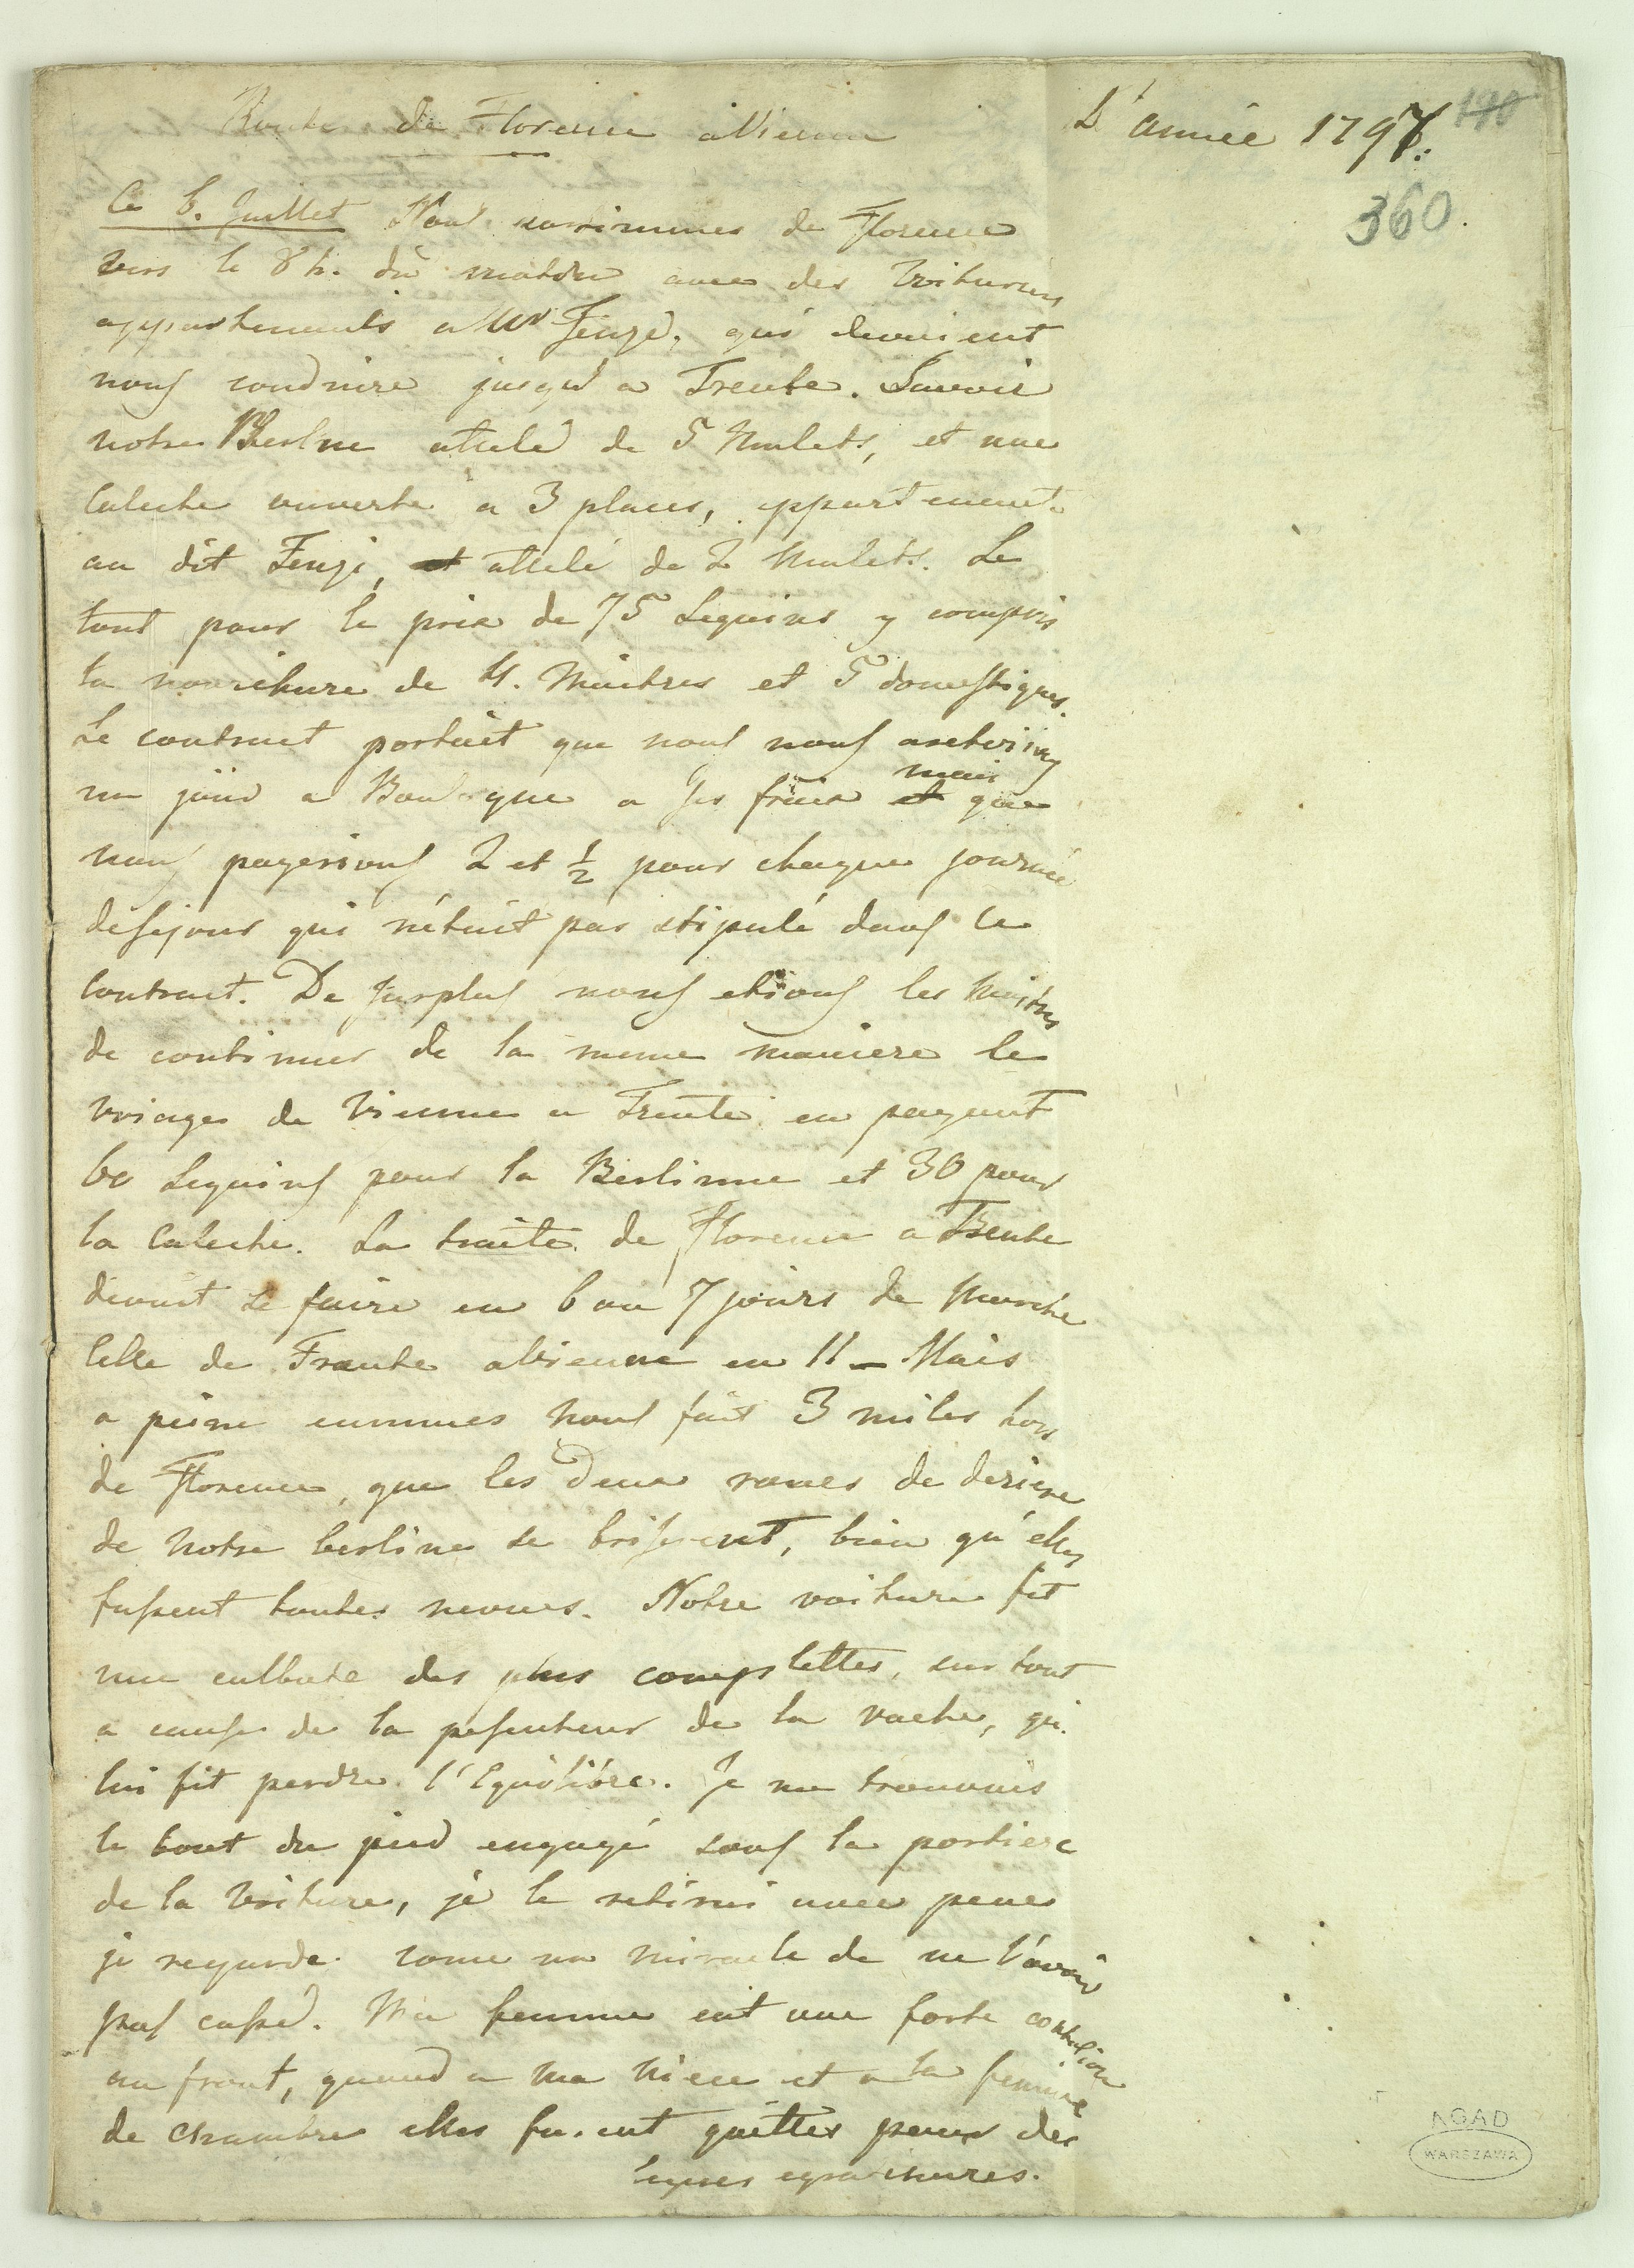 Route de Florence a Vienne
L'année 1797.
190
360.
Ce 6. Juillet Nous partimes de Florence
vers le 8 h. du matin avec des voituriers
appartenants a Mr Fenzi, qui devoient
nous conduire jusqu'a Trente. Savoir
notre Berline attelé de 5 Mulets, et une
Caleche ouverte a 3 places, appartenente
au dit Fenzi, et attelé de 2 Mulets. Le
tout pour le prix de 75 Sequins y compris
la nouriture de 4. Maitres et 5 domestiques.
Le contract portait que nous nous
un jour a Boulogne a ses frais et mais que
nous payerions 2 et ½ pour chaque journée
desejour qui n'étoit pas stipulé dans le
Contract. De surplus nous etions les Maitres
de continuer de la meme maniere le
voiages de Vienne a Trente en payent
60 Sequins pour la Berlinne et 30 pour
la Caleche. La traite de Florence a Trente
devoit se faire en 6 ou 7 jours de Marche
celle de Trente a Vienne en 11 – Mais
a peine eummes nous fait 3 miles hors
de Florence, que les deux roues de deriere
de notre berline se briserent, bien qu'elles
fussent toutes neoues. Notre voiture fit
une culbute des plus complettes, sur tout
a cause de la pesenteur de la vache, qui
lui fit perdre l'Equilibre. Je me trouvais
le bout du pied engagé sous la portiere
de la Voiture, je le retirai avec peine
je regarde come un miracle de ne l'avoir
pas cassé. Ma femme eut une forte contusion
au front, quand a ma Niece et a la femme
de chambre elles furent quittes pour des
legeres egratinures.
AGAD
WARSZAWA